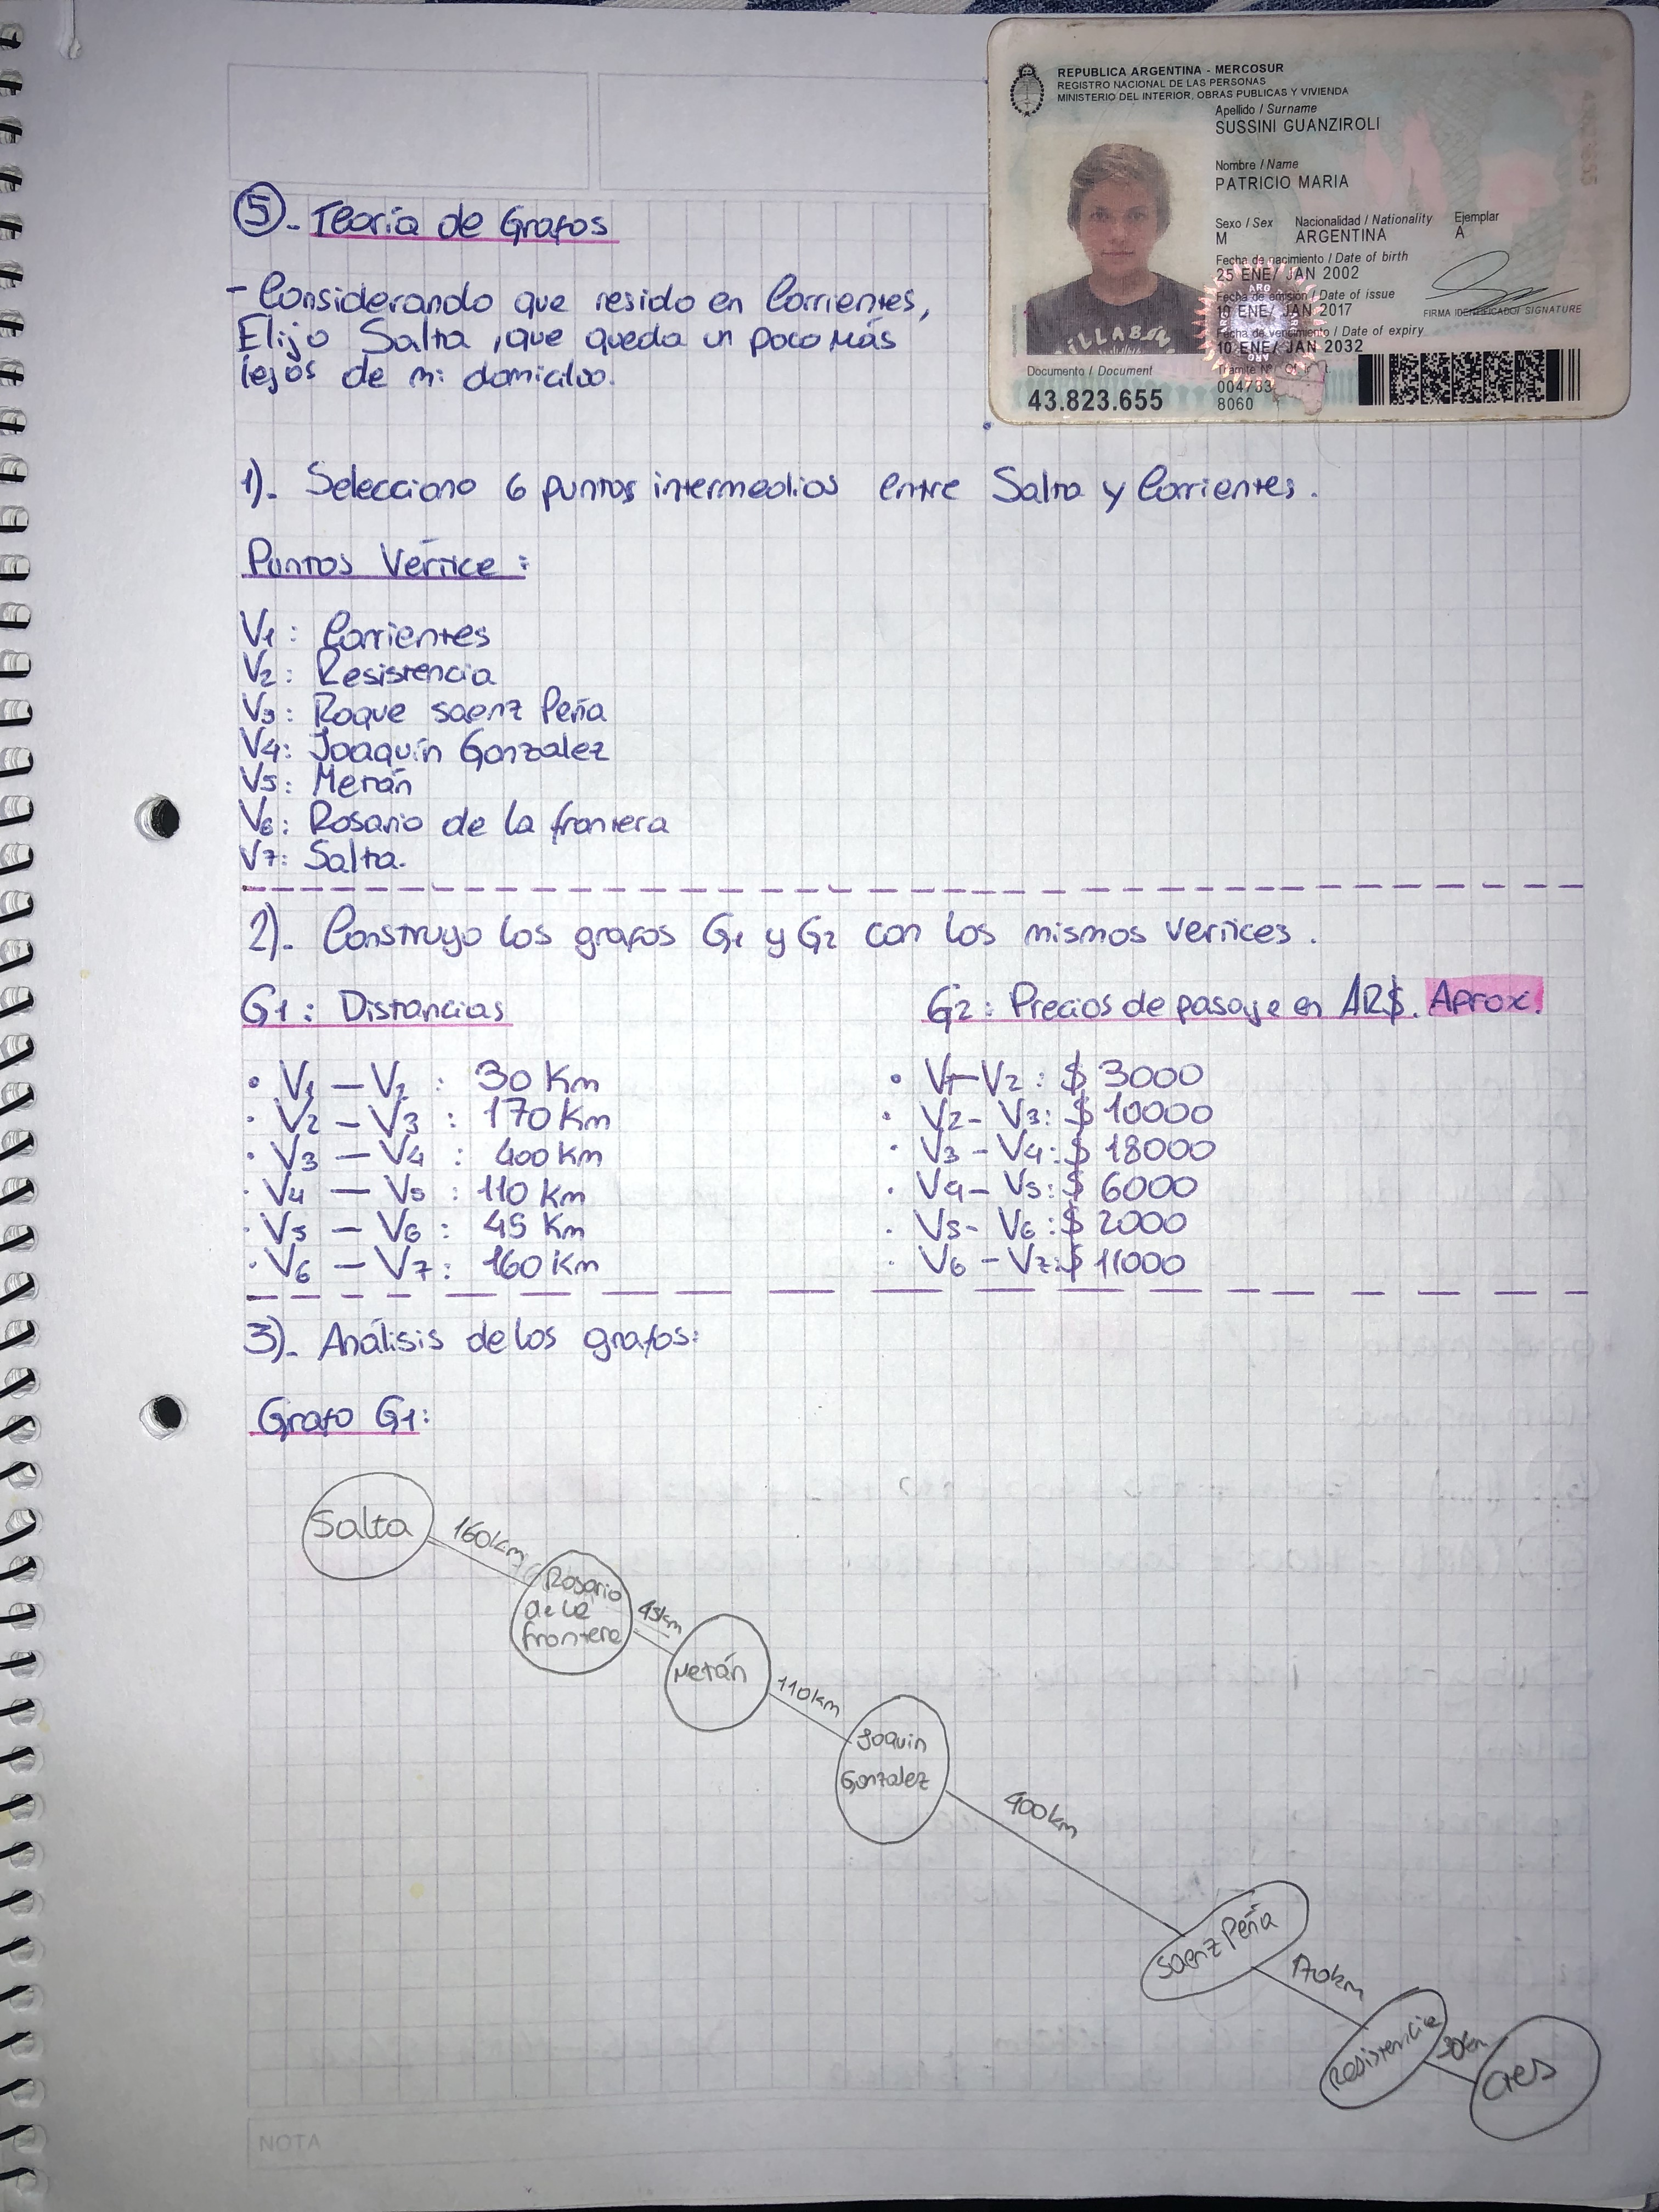 REPUBLICA ARGENTINA - MERCOSUR
REGISTRO NACIONAL DE LAS PERSONAS
MINISTERIO DEL INTERIOR, OBRAS PUBLICAS Y VIVIENDA
Apellido / Surname
SUSSINI GUANZIROLI
Nombre / Name
PATRICIO MARIA
Sexo / Sex Nacionalidad / Nationality Ejemplar
M ARGENTINA A
Fecha de nacimiento / Date of birth
25 ENE/ JAN 2002
Fecha de emisión / Date of issue
10 ENE/ JAN 2017
FIRMA IDENTIFICADO/ SIGNATURE
Fecha de vencimiento / Date of expiry
10 ENE/ JAN 2032
Documento / Document
43.823.655
Tramite Nº
004733
8060
5.- Teoría de Grafos
- Considerando que resido en Corrientes,
Elijo Salta, que queda un poco más
lejos de mi domicilio.
1).- Selecciono 6 puntos intermedios entre Salta y Corrientes.
Puntos Vértice:
V1: Corrientes
V2: Resistencia
V3: Roque saenz Peña
V4: Joaquín Gonzalez
V5: Metán
V6: Rosario de la frontera
V7: Salta.
2).- Construyo los grafos G1 y G2 con los mismos vertices.
G1: Distancias
G2: Precios de pasaje en AR$. Aprox.
• V1 — V2 : 30 Km
• V2 — V3 : 170 Km
• V3 — V4 : 400 Km
• V4 — V5 : 110 Km
• V5 — V6 : 45 Km
• V6 — V7 : 160 Km
• V1-V2: $ 3000
• V2- V3: $ 10000
• V3 - V4: $ 18000
• V4- V5: $ 6000
• V5- V6: $ 2000
• V6 - V7: $ 11000
3).- Análisis de los grafos:
Grafo G1:
Salta
160km
Rosario
de la
frontera
45km
Metán
110km
Joaquin
Gonzalez
400km
Saenz Peña
170km
Resistencia
30km
Ctes
NOTA